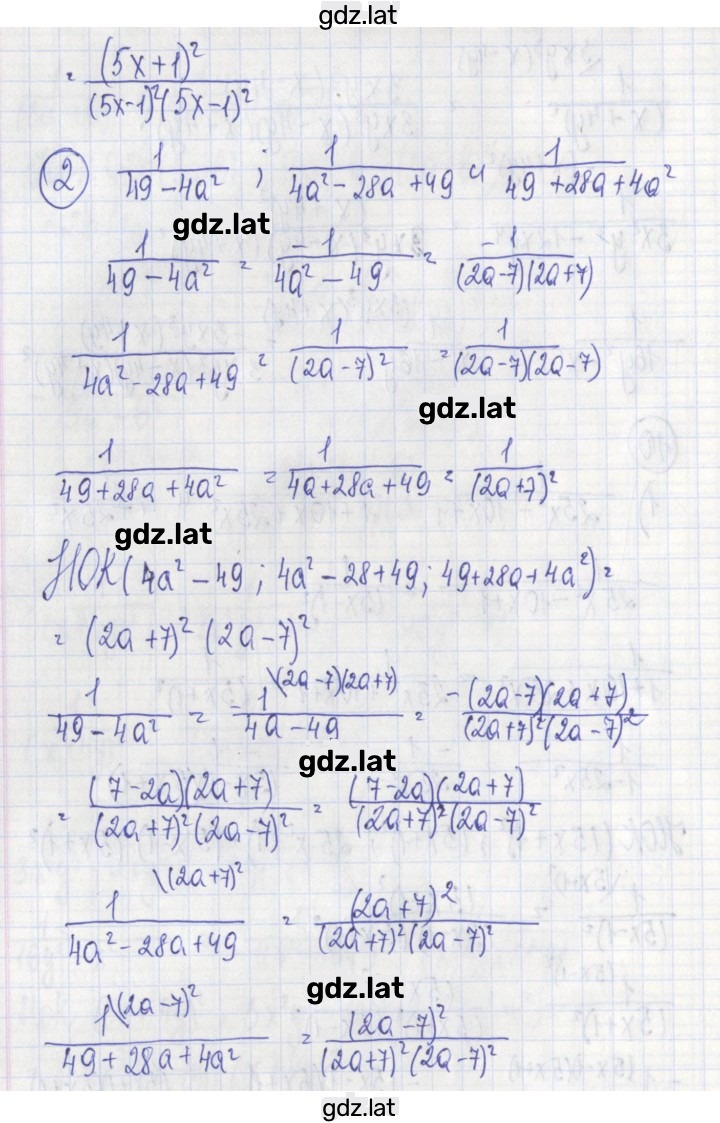 gdz.lat
= (5x+1)² / (5x-1)²(5x-1)²
② 1 / 49-4a² ; 1 / 4a²-28a+49 и 1 / 49+28a+4a²
gdz.lat
1 / 49-4a² = -1 / 4a²-49 = -1 / (2a-7)(2a+7)
1 / 4a²-28a+49 = 1 / (2a-7)² = 1 / (2a-7)(2a-7)
gdz.lat
1 / 49+28a+4a² = 1 / 4a+28a+49 = 1 / (2a+7)²
gdz.lat
НОК(4a²-49; 4a²-28+49; 49+28a+4a²)=
= (2a+7)² (2a-7)²
1 / 49-4a² = - 1\(2a-7)(2a+7) / 4a-49 = -(2a-7)(2a+7) / (2a+7)²(2a-7)²
gdz.lat
= (7-2a)(2a+7) / (2a+7)²(2a-7)² = (7-2a)(2a+7) / (2a+7)²(2a-7)²
1\(2a+7)² / 4a²-28a+49 = (2a+7)² / (2a+7)²(2a-7)²
gdz.lat
1\(2a-7)² / 49+28a+4a² = (2a-7)² / (2a+7)²(2a-7)²
gdz.lat